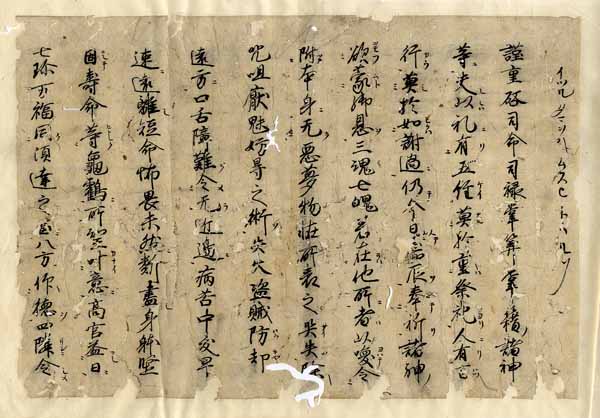 謹重啓司命司禄掌籍諸神
等夫以礼有五経莫於重祭祀人有百
行莫於如謝過仍今日吉辰奉祈諸神
欲蒙御恩三魂七魄若在他所者以愛令
附本身无悪夢物恠所表之
呪咀厭魅之術火盗賊防却
遠方口舌障難令无近辺病苦中夭早
速遠離短命怖畏未然断盡身躰堅
固寿命等龜鶴所望叶意高官益日
七珎万福同須達之昌八方作徳四隣令